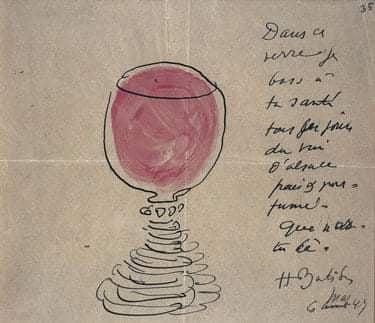 Dans ce
verre je
bois à
ta santé
tous les jours
du vin
d'alsace
frais & par-
fumé.
que n'es-
tu là.
H Matisse
mai
6